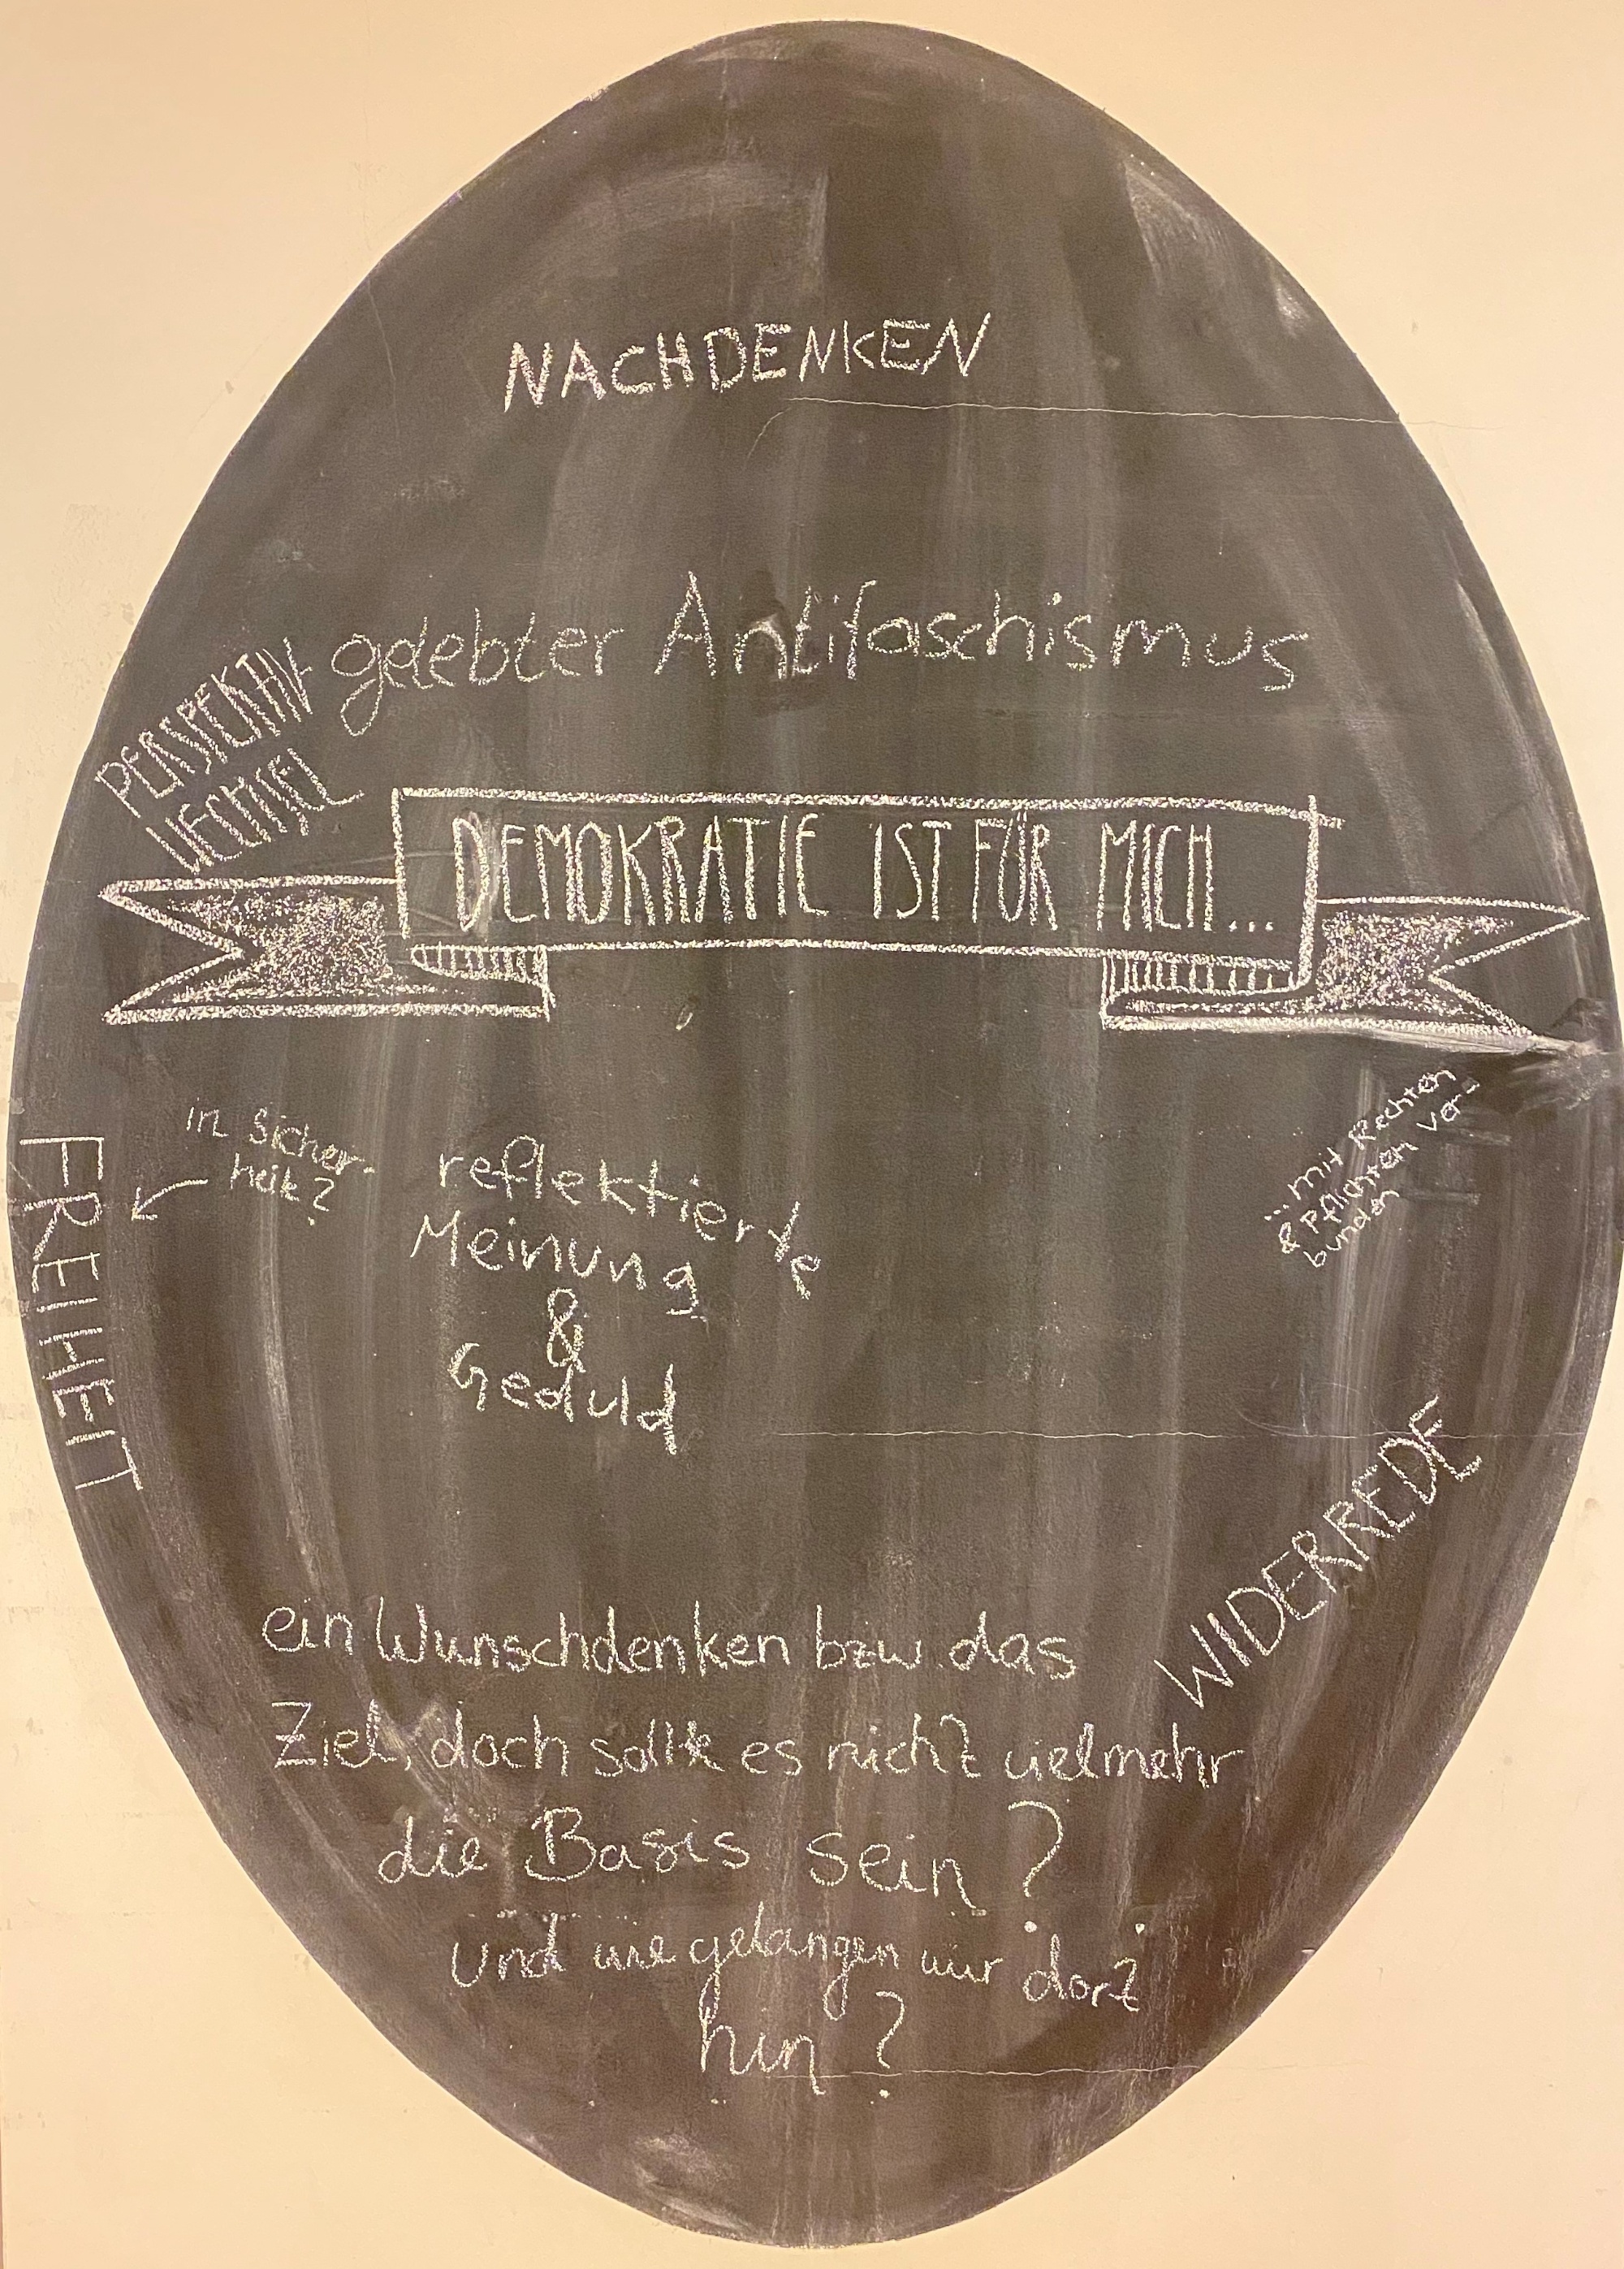 NACHDENKEN
gelebter Antifaschismus
PERSPEKTIV
WECHSEL
DEMOKRATIE IST FÜR MICH...
in Sicher-
heit?
FREIHEIT
reflektierte
Meinung
&
Geduld
...mit Rechten
& Pflichten ver-
bunden
WIDERREDE
ein Wunschdenken bzw. das
Ziel, doch sollte es nicht vielmehr
die Basis sein?
Und wie gelangen wir dort
hin?